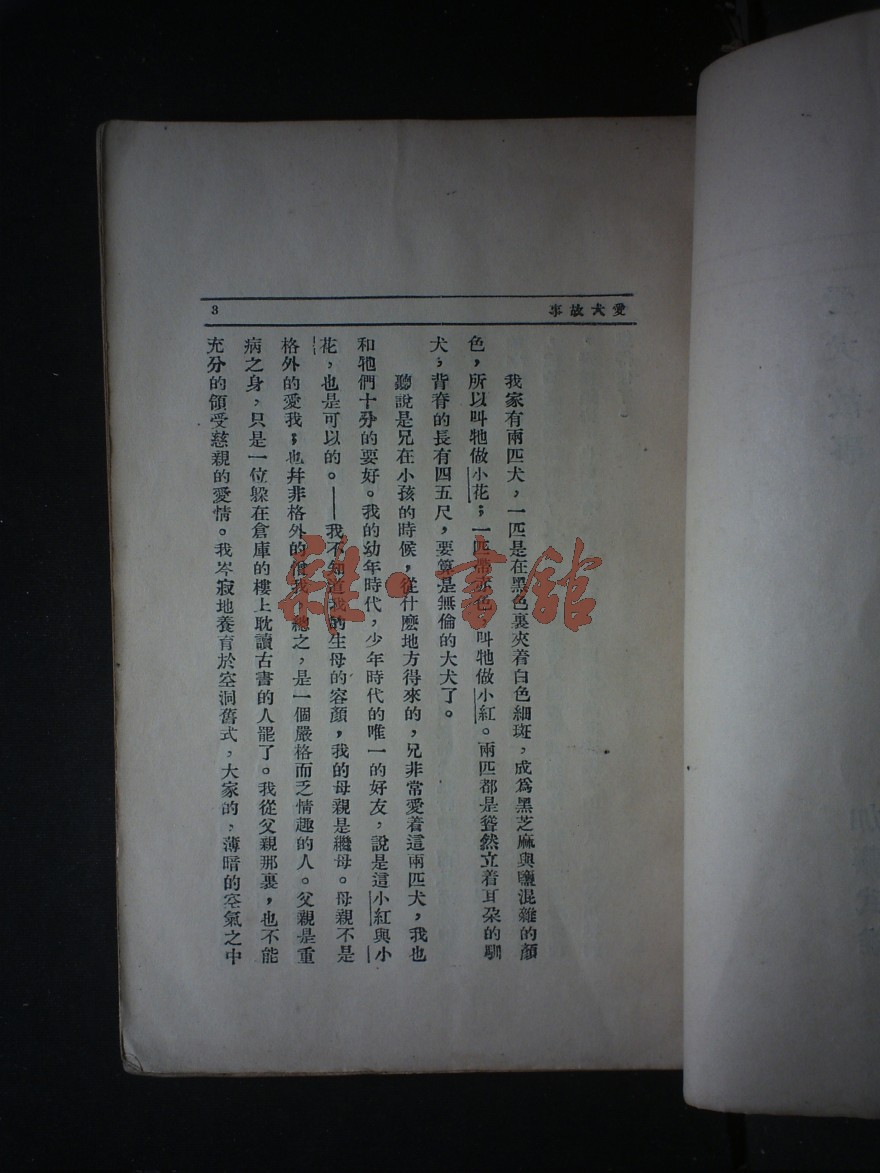 愛犬故事
3
我家有兩匹犬，一匹是在黑色裏夾着白色細斑，成爲黑芝麻與鹽混雜的顏
色，所以叫牠做小花；一匹帶赤色，叫牠做小紅。兩匹都是聳然立着耳朶的馴
犬；背脊的長有四五尺，要算是無倫的大犬了。
聽說是兄在小孩的時候，從什麼地方得來的，兄非常愛着這兩匹犬，我也
和牠們十分的要好。我的幼年時代，少年時代的唯一的好友，說是這小紅與小
花，也是可以的。——我不知道我的生母的容顏，我的母親是繼母。母親不是
格外的愛我；也幷非格外的憎我，總之，是一個嚴格而乏情趣的人。父親是重
病之身，只是一位躲在倉庫的樓上耽讀古書的人罷了。我從父親那裏，也不能
充分的領受慈親的愛情。我岑寂地養育於空洞舊式，大家的，薄暗的空氣之中
雜·書舘